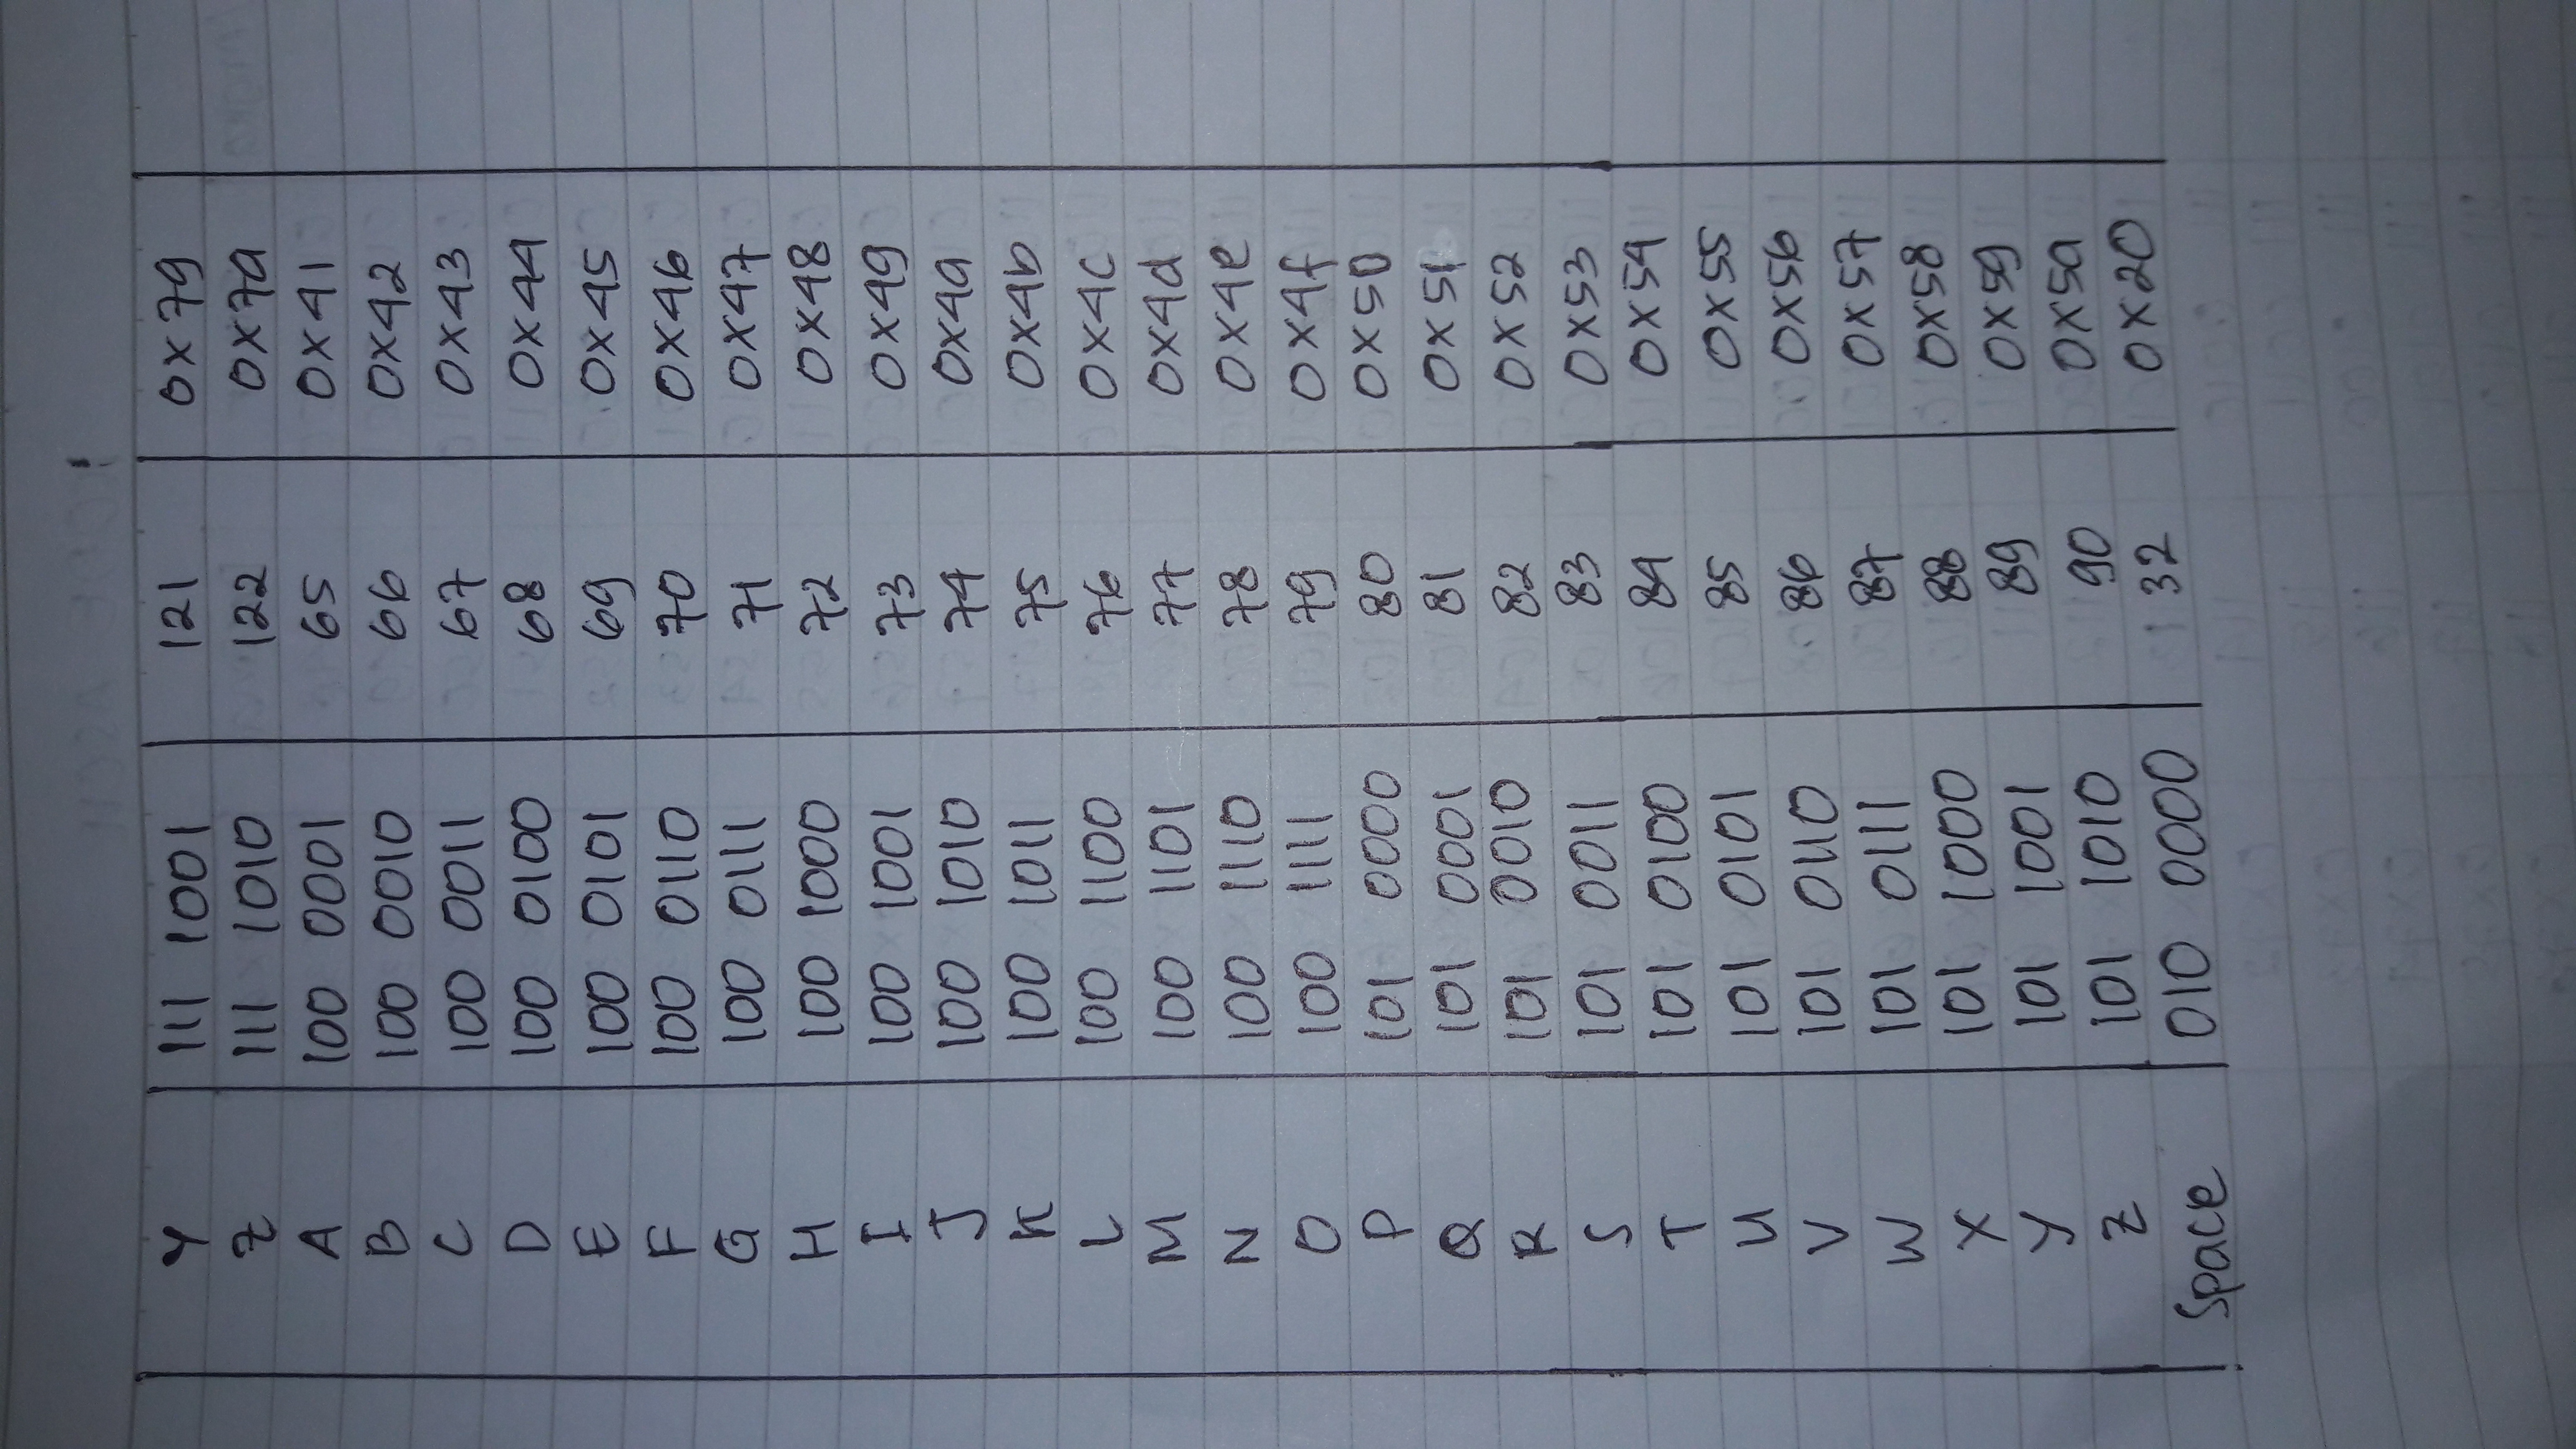 Y 111 1001 121 0x79
Z 111 1010 122 0x7a
A 100 0001 65 0x41
B 100 0010 66 0x42
C 100 0011 67 0x43
D 100 0100 68 0x44
E 100 0101 69 0x45
F 100 0110 70 0x46
G 100 0111 71 0x47
H 100 1000 72 0x48
I 100 1001 73 0x49
J 100 1010 74 0x4a
K 100 1011 75 0x4b
L 100 1100 76 0x4c
M 100 1101 77 0x4d
N 100 1110 78 0x4e
O 100 1111 79 0x4f
P 101 0000 80 0x50
Q 101 0001 81 0x51
R 101 0010 82 0x52
S 101 0011 83 0x53
T 101 0100 84 0x54
U 101 0101 85 0x55
V 101 0110 86 0x56
W 101 0111 87 0x57
X 101 1000 88 0x58
Y 101 1001 89 0x59
Z 101 1010 90 0x5a
Space 010 0000 32 0x20